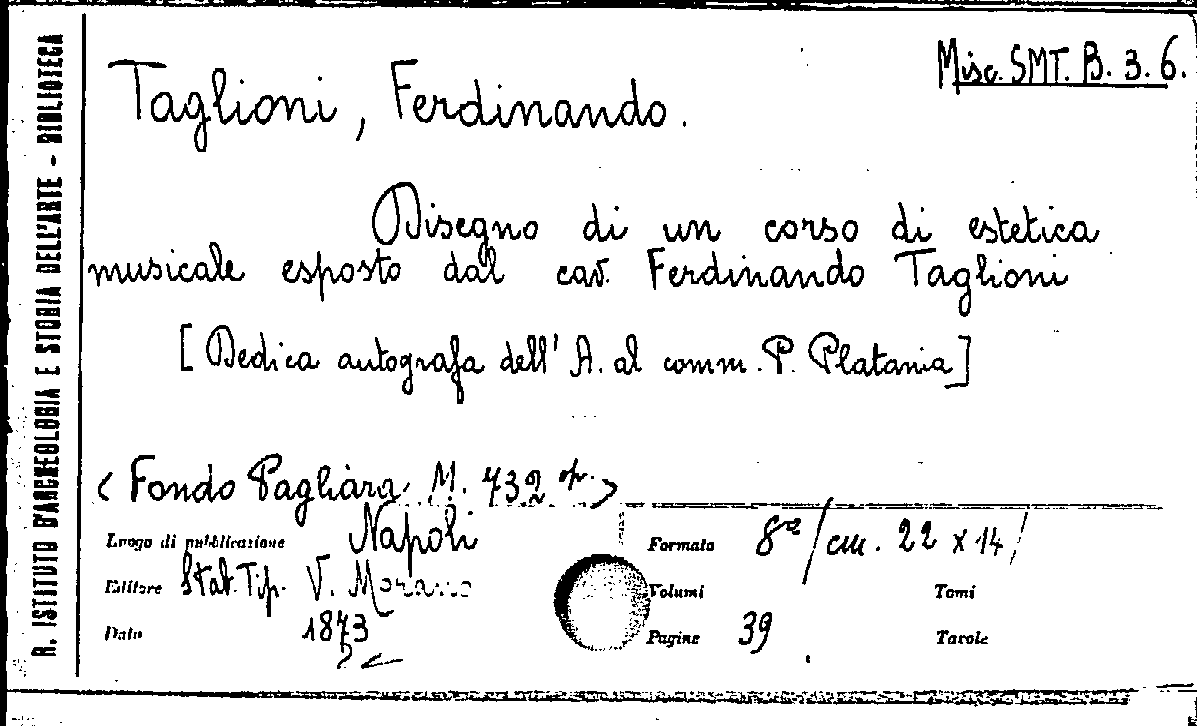 R. ISTITUTO D'ARCHEOLOGIA E STORIA DELL'ARTE - BIBLIOTECA
Misc. SMT. B. 3. 6.
Taglioni, Ferdinando.
Disegno di un corso di estetica
musicale esposto dal cav. Ferdinando Taglioni
[Dedica autografa dell'A. al comm. P. Platania]
< Fondo Pagliara M. 732 >
Luogo di pubblicazione Napoli
Formato 8° / cm. 22 x 14 /
Editore Stab. Tip. V. Morano
Volumi
Tomi
Data 1873
Pagine 39
Tavole